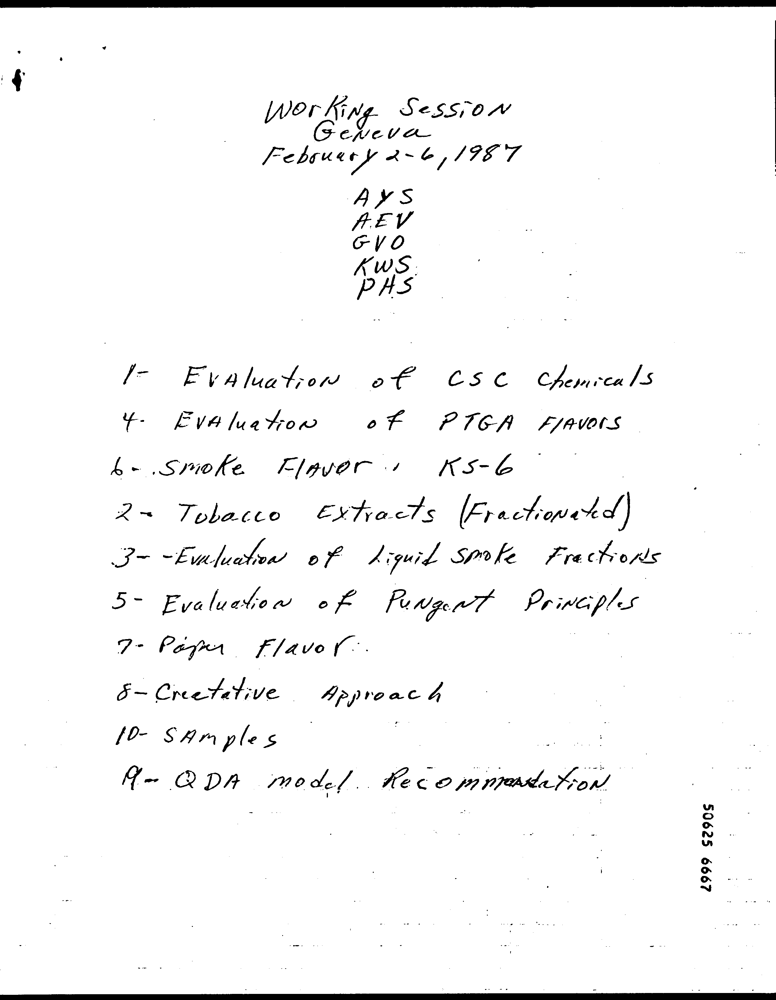 Working Session
Geneva
February 2-6, 1987
AYS
AEV
GVO
KWS
PHS
1- Evaluation of CSC Chemicals
4- Evaluation of PTGA Flavors
6- Smoke Flavor, KS-6
2- Tobacco Extracts (Fractionated)
3- -Evaluation of Liquid Smoke Fractions
5- Evaluation of Pungent Principles
7- Paper Flavor
8- Creatative Approach
10- Samples
9- QDA model Recommendation
50625 6667